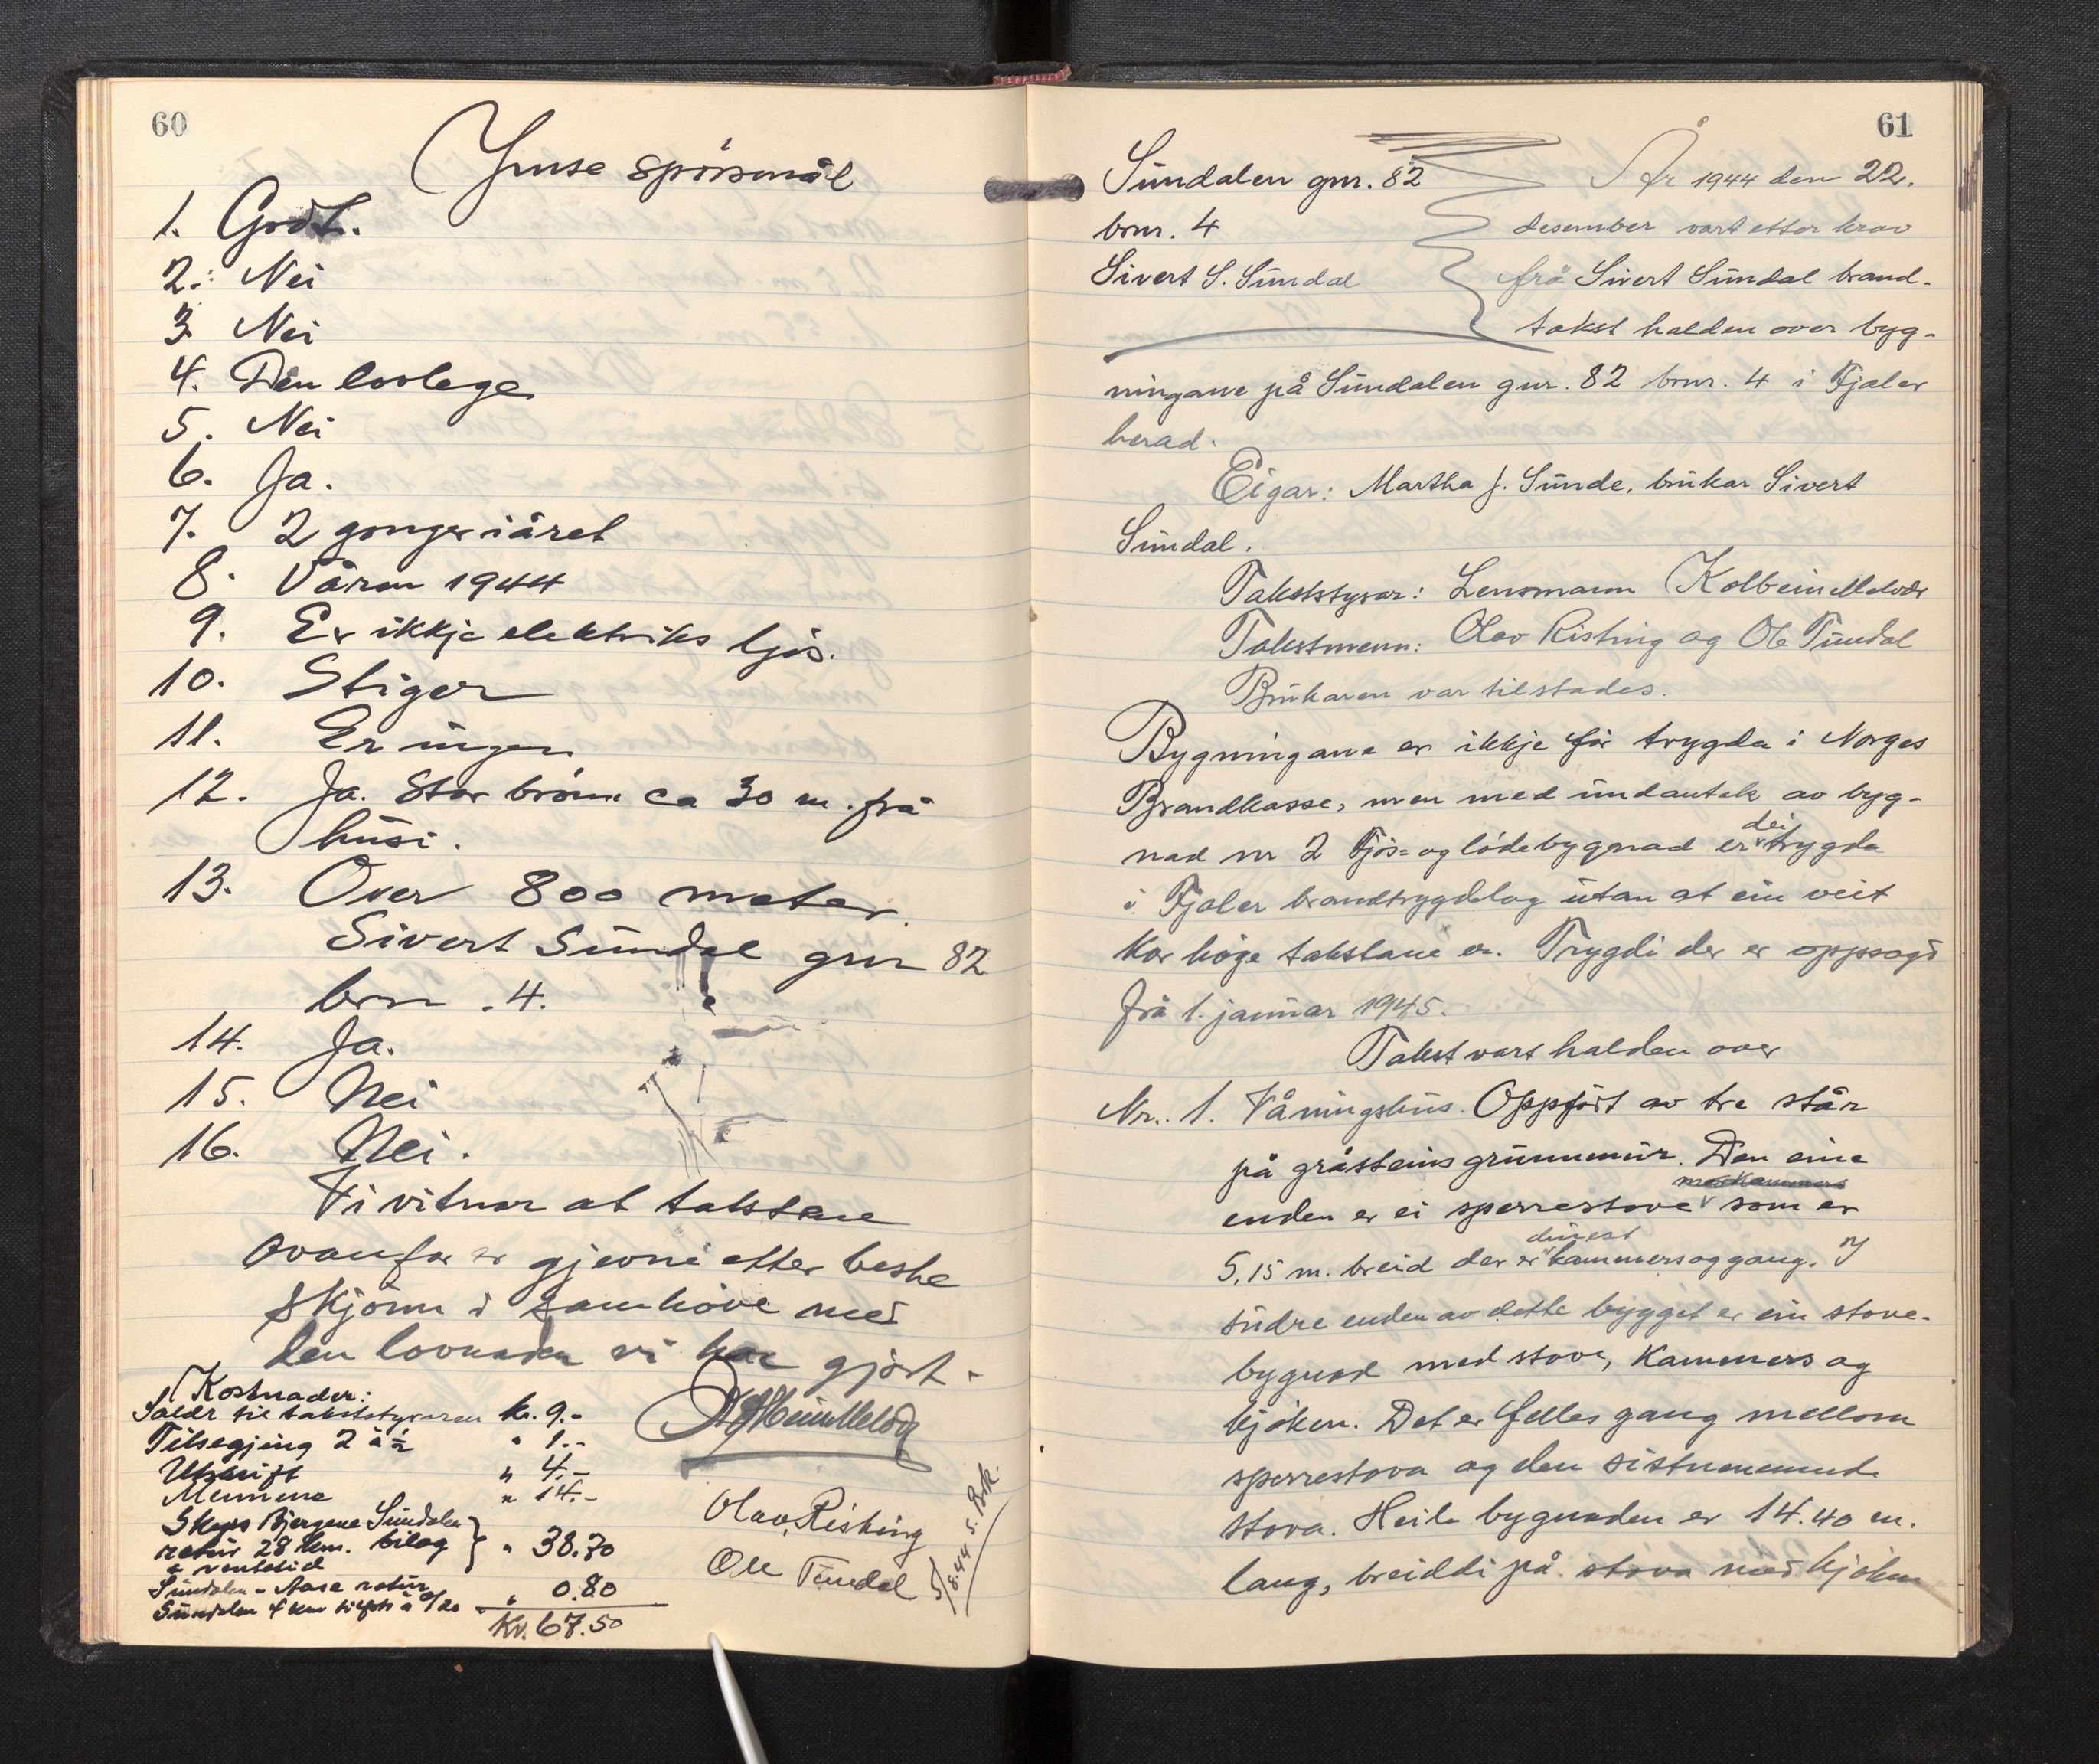 60
Ymse spörsmål
1. Godt.
2. Nei
3. Nei
4. Den lovlege
5. Nei
6. Ja.
7. 2 gonger i året
8. Våren 1944
9. Er ikkje elektriks ljos.
10. Stiger
11. Er ingen
12. Ja. Stor brönn ca 30 m. frå
husi.
13. Over 800 meter.
Sivert Sundal gnr 82
brn. 4.
14. Ja.
15. Nei
16. Nei.
Vi vitnar at takstane
ovanfor er gjevne etter beste
skjönn i samhöve med
den lovnaden vi har gjort.
Kostnader:
til takststyraren kr. 9.-
Tilsegjing 2 à ½ " 1.-
Utskrift " 4.-
Mennene " 14.-
Skyss Bjergene Sundalen
retur 28 km. bilag " 38.70
+ ventetid
Sundalen - Aase retur
Sundalen 4 km til fots à 0/20 " 0.80
Kr. 67.50
Olav Risting
Ole Tundal
61
Sundalen gnr. 82
brnr. 4
Sivert S. Sundal
År 1944 den 22.
desember vart etter krav
frå Sivert Sundal brand-
takst halden over byg-
ningane på Sundalen gnr. 82 brnr. 4 i Fjaler
herad.
Eigar: Martha J. Sunde, brukar Sivert
Sundal.
Takststyrar: Lensmann Kolbein Melvær
Takstmenn: Olav Risting og Ole Tundal
Brukaren var tilstades.
Bygningane er ikkje för trygda i Norges
Brandkasse, men med undantak av byg-
nad nr 2 Fjös- og lödebygnad er dei trygda
i Fjaler brandtrygdelag utan at ein veit
kor höge takstane er. Trygdi der er oppsagd
frå 1. januar 1945.
Takst vart halden over
Nr. 1. Våningshus. Oppfört av tre står
på gråsteins grunnmur. Den eine
enden er ei sperrestove som er
5,15 m. breid der er dinest kammers og gang. I
sudre enden av dette bygget er ein stove-
bygnad med stove, kammers og
kjöken. Det er felles gang mellom
sperrestova og den sistnemnde
stova. Heile bygnaden er 14.40 m.
lang, breiddi på stova med kjöken